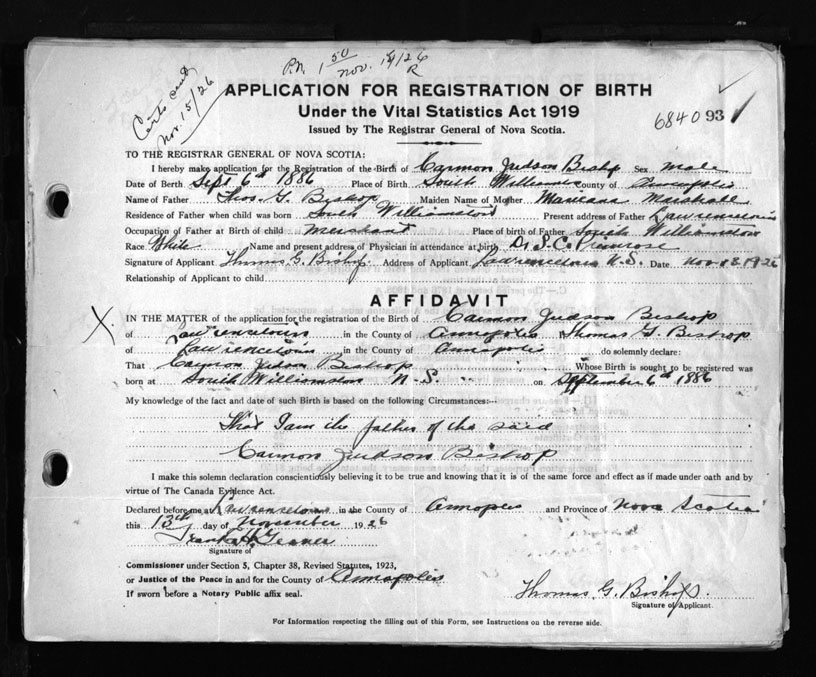 P.N. 1 50 Nov. 15/26
R
Certs cert
Nov. 15/26
APPLICATION FOR REGISTRATION OF BIRTH
Under the Vital Statistics Act 1919
Issued by The Registrar General of Nova Scotia.
6840 93
TO THE REGISTRAR GENERAL OF NOVA SCOTIA:
I hereby make application for the Registration of the Birth of Carmon Judson Bishop Sex male
Date of Berth Sept 6th 1886 Place of Birth South Williamston County of Annapolis
Name of Father Thos. G. Bishop Maiden Name of Mother Marshall
Residence of Father when child was born South Williamston Present address of Father Lawrencetown
Occupation of Father at Birth of child merchant Place of birth of Father South Williamston
Race White Name and present address of Physician in attendance at birth Dr. S. C. Primrose
Signature of Applicant Thomas G. Bishop. Address of Applicant Lawrencetown N.S. Date Nov 13 1926
Relationship of Applicant to child
AFFIDAVIT
X. IN THE MATTER of the application for the registration of the Birth of Carmon Judson Bishop
of Lawrencetown in the County of Annapolis Thomas G. Bishop
of Lawrencetown in the County of Annapolis do solemnly declare:
That Carmon Judson Bishop Whose Birth is sought to be registered was
born at South Williamston N-S. on September 6th 1886
My knowledge of the fact and date of such Birth is based on the following Circumstances:--
That I am the father of the said
Carmon Judson Bishop
I make this solemn declaration conscientiously believing it to be true and knowing that it is of the same force and effect as if made under oath and by
virtue of The Canada Evidence Act.
Declared before me at Lawrencetown in the County of Annapolis and Province of Nova Scotia
this 13th day of November 1926
Frank H.
Signature of
Commissioner under Section 5, Chapter 38, Revised Statutes, 1923,
or Justice of the Peace in and for the County of Annapolis
If sworn before a Notary Public affix seal.
Thomas G. Bishop.
Signature of Applicant.
For Information respecting the filling out of this Form, see Instructions on the reverse side.